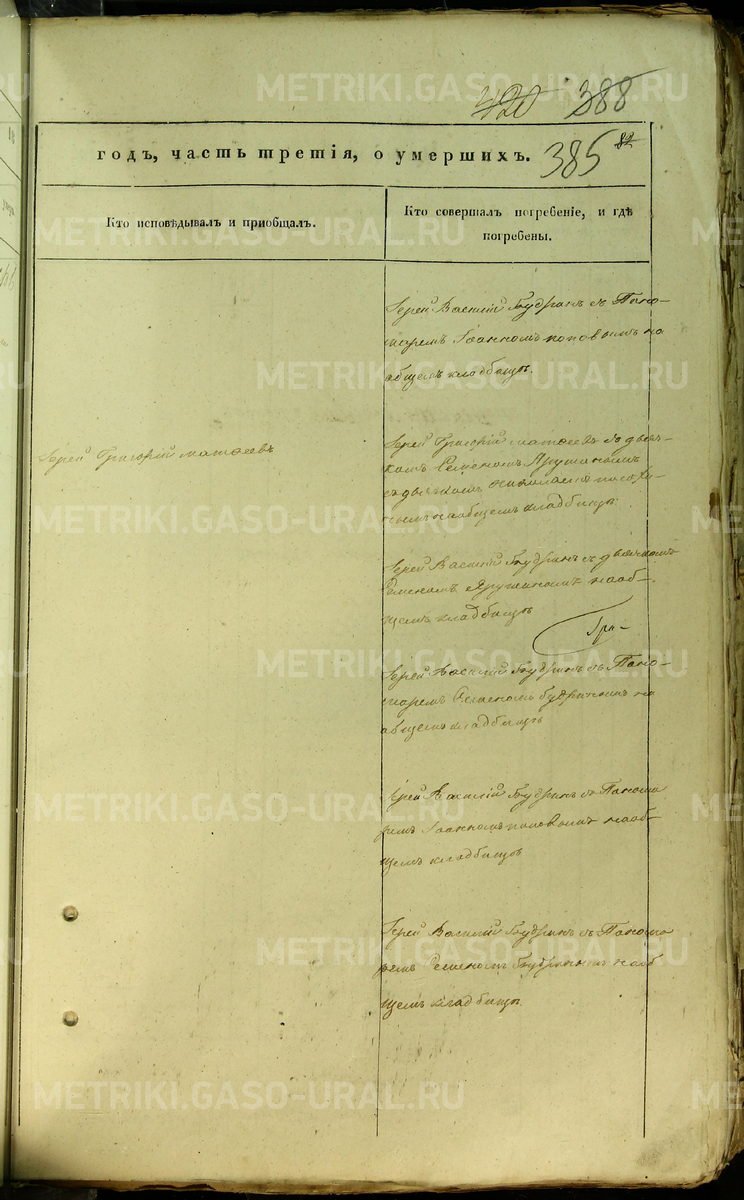 420 388
годъ, часть третія, о умершихъ. 385 82
Кто исповѣдывалъ и пріобщалъ.
Кто совершалъ погребеніе, и гдѣ
погребены.
Іерей Василій Будринъ съ Поно-
маремъ Іоанномъ поповымъ на
общемъ кладбищѣ.
Іерей Григорій матѳеевъ
Іерей Григорій матѳеевъ съ дьяч-
комъ Семеномъ
съ дьячкомъ Николаемъ
нымъ на общемъ кладбищѣ
Іерей Василій Будринъ съ дьячкомъ
Семеномъ на об-
щемъ кладбищѣ
Гри-
Іерей Василій Будринъ съ Поно-
маремъ Семеномъ Будринымъ на
общемъ кладбищѣ
Іерей Василій Будринъ съ Понома
ремъ Іоанномъ поповымъ на об-
щемъ кладбищѣ
Іерей Василій Будринъ съ Понома
ремъ Семеномъ Будринымъ на об
щемъ кладбищѣ.
METRIKI.GASO-URAL.RU